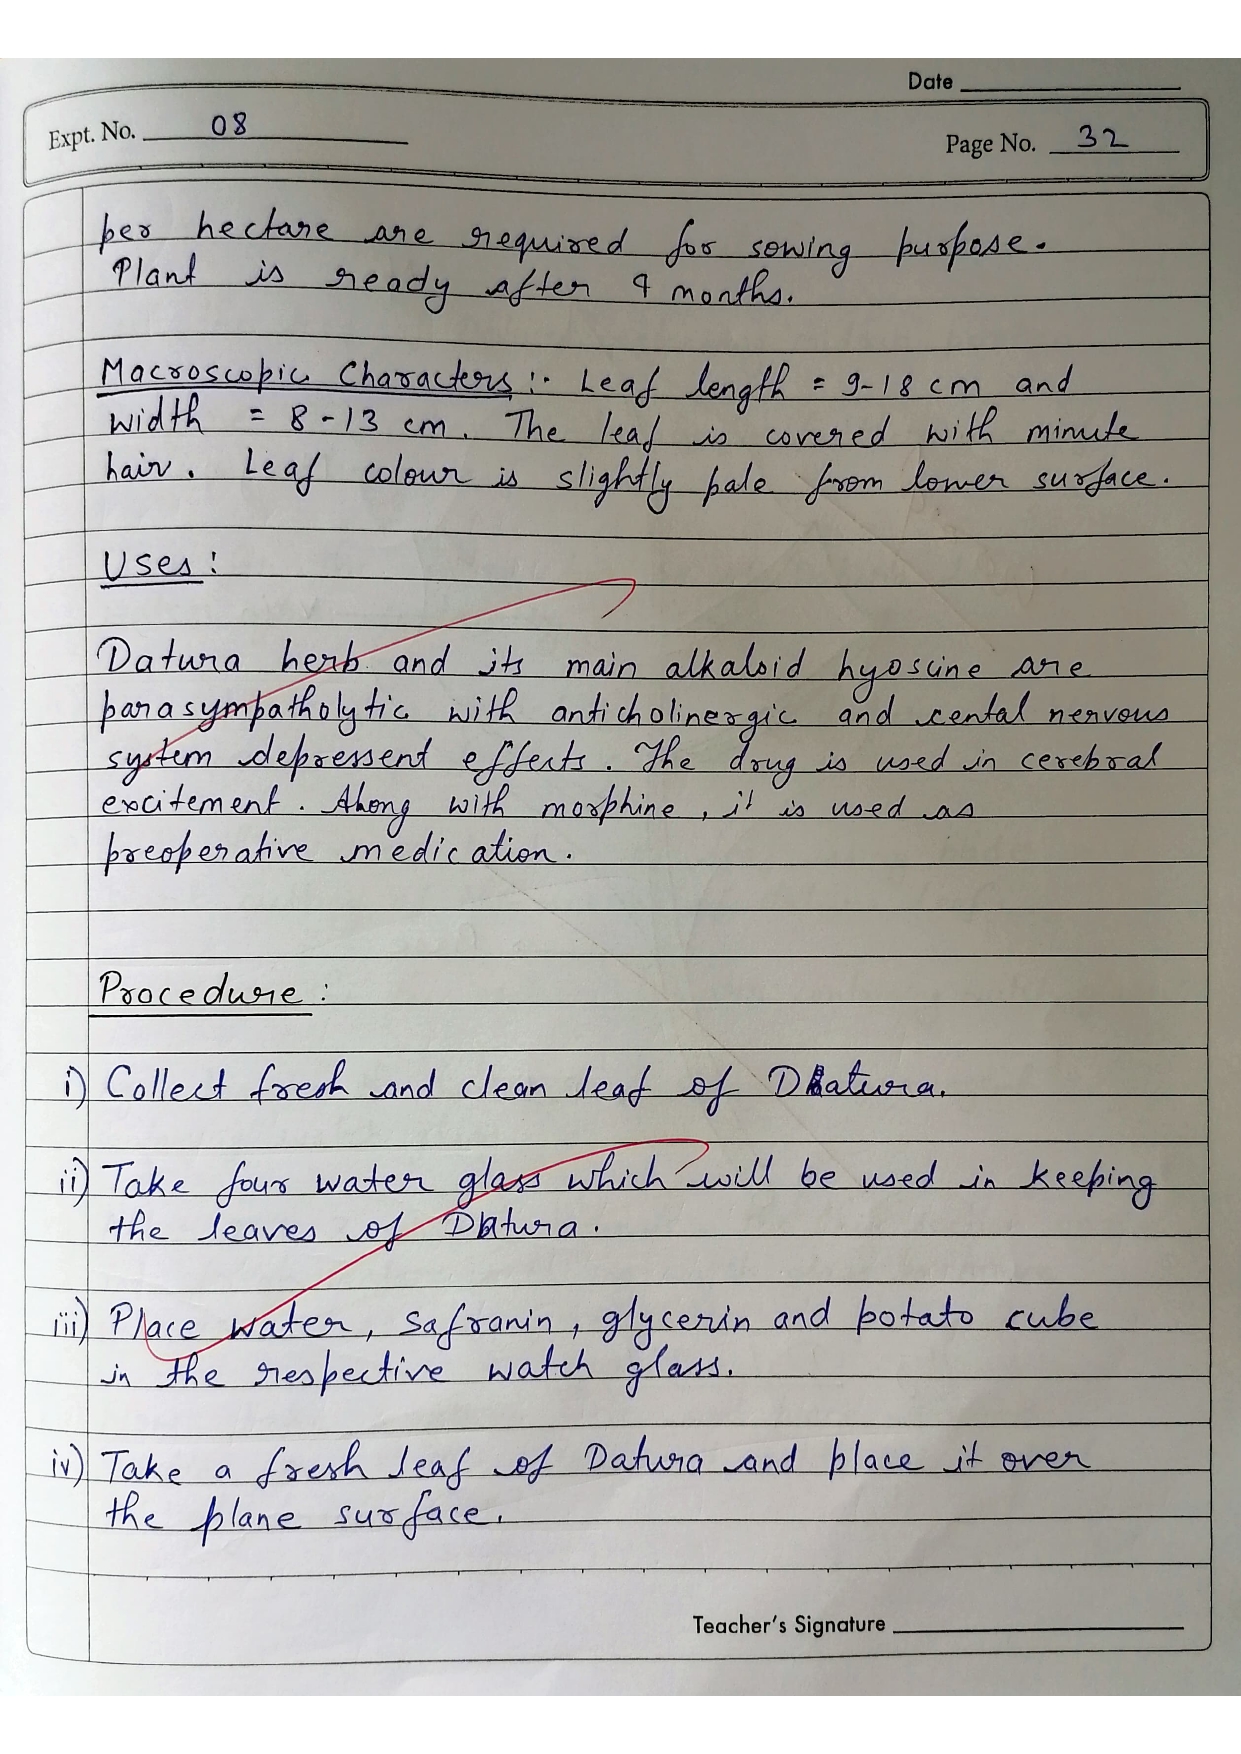 Date
Expt. No. 08
Page No. 32
per hectare are required for sowing purpose.
Plant is ready after 4 months.
Macroscopic Characters :- Leaf length = 9-18 cm and
width = 8-13 cm. The leaf is covered with minute
hair. Leaf colour is slightly pale from lower surface.
Uses :
Datura herb and its main alkaloid hyoscine are
parasympatholytic with anticholinergic and cental nervous
system depressent effects. The drug is used in cerebral
excitement. Along with morphine, it is used as
preoperative medication.
Procedure :
i) Collect fresh and clean leaf of Datura.
ii) Take four water glass which will be used in keeping
the leaves of Datura.
iii) Place water, safranin, glycerin and potato cube
in the respective watch glass.
iv) Take a fresh leaf of Datura and place it over
the plane surface.
Teacher's Signature